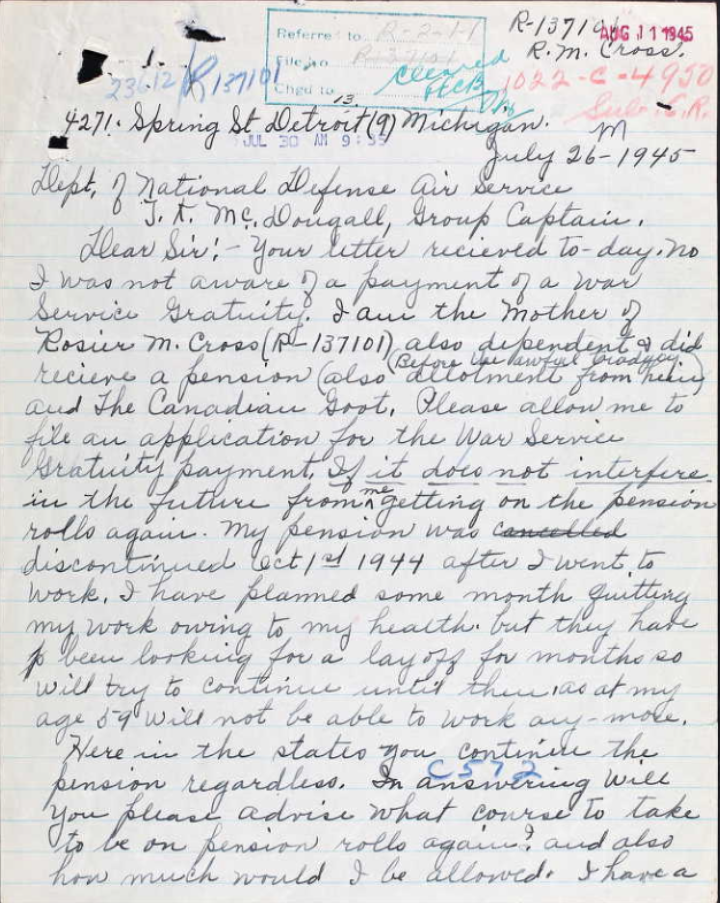 R-137101
AUG 11 1945
R.M. Cross.
Referred to R-2-1-1
File No R-137101
Chgd to
cleared
23612 R137101
1022-C-4950
Sub. C.R.
13
4271. Spring St Detroit (9) Michigan.
JUL 30 AM 9:35
M
July 26-1945
Dept. of National Defense Air Service
T. K. Mc. Dougall, Group Captain.
Dear Sir:- Your letter recieved to-day. No
I was not aware of a payment of a War
Service Gratuity. I am the Mother of
Rosier M. Cross (R-137101) also dependent & did
(Before the awful tradgedy
recieve a pension (also allotment from him)
and The Canadian Govt. Please allow me to
file an application for the War Service
Gratuity payment. If it does not interfere
in the future from me getting on the pension
rolls again. My pension was cancelled
discontinued Oct 1st 1944 after I went to
work. I have planned some month quitting
my work owing to my health. but they have
been looking for a lay off for months so
will try to continue until then, as at my
age 59 will not be able to work any-more.
Here in the states you continue the
C572
pension regardless. In answering will
you please advise what course to take
to be on pension rolls again? and also
how much would I be allowed. I have a